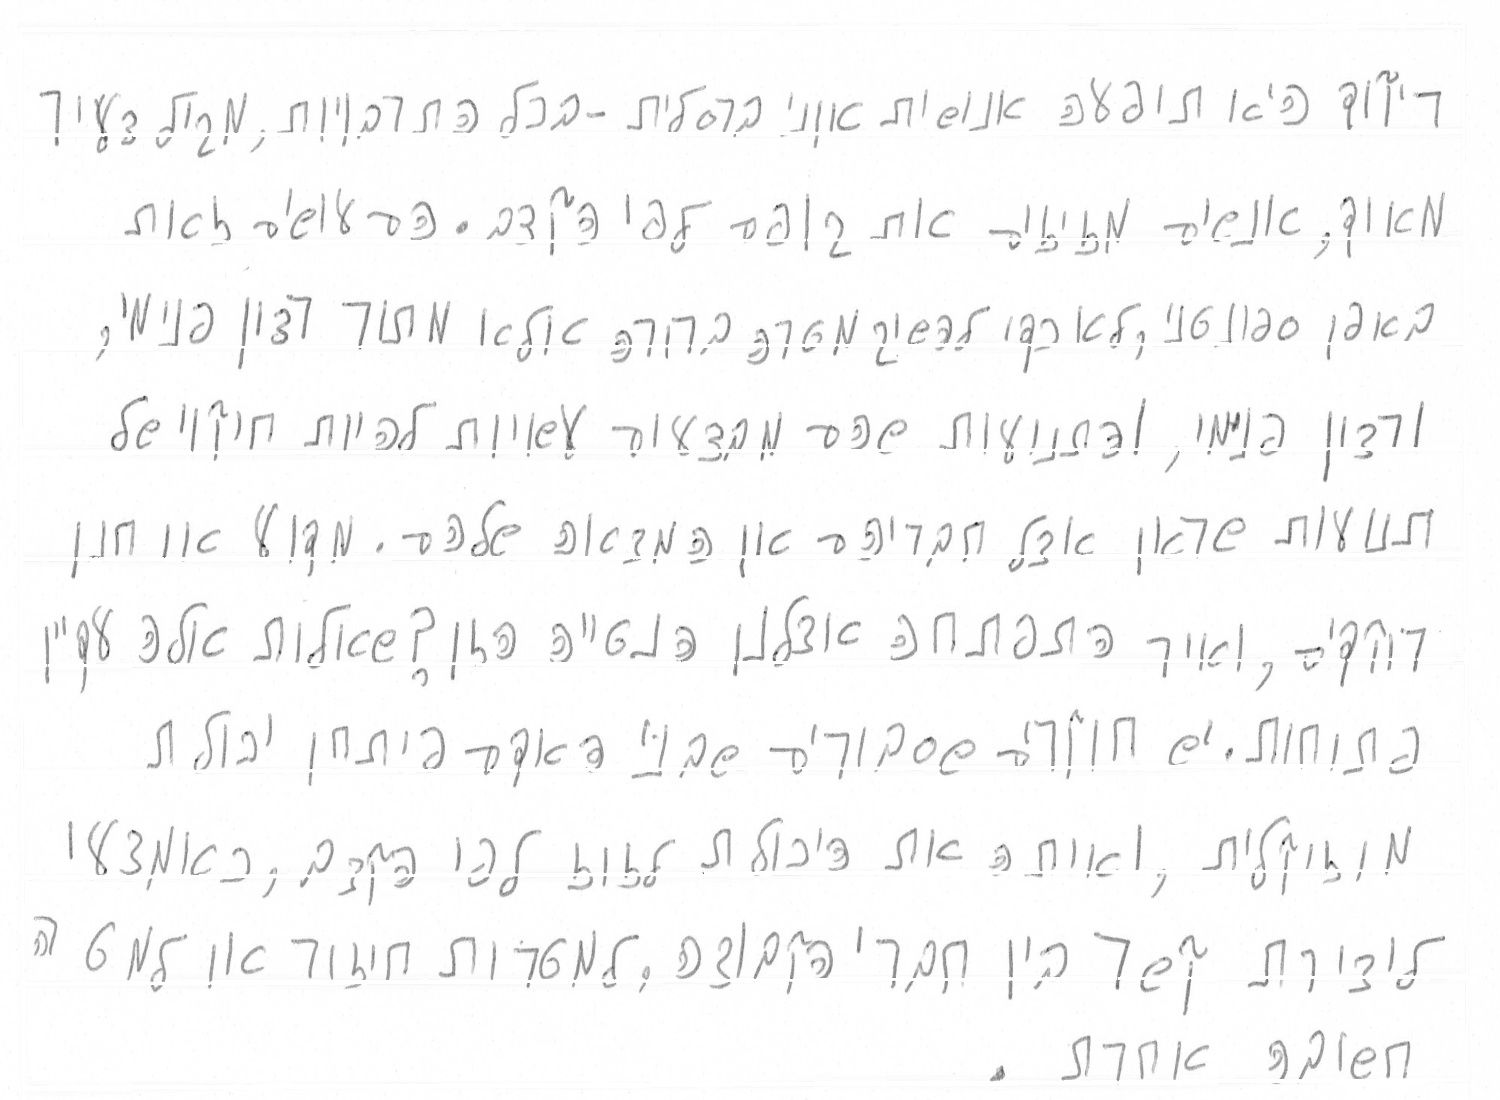 ריקוד היא תופעה אנושית אוניברסלית - בכל התרבויות, מגיל צעיר
מאוד, אנשים מזיזים את גופם לפי הקצב. הם עושים זאת
באופן ספונטני, לא כדי להשיג מטרה ברורה אלא מתוך רצון פנימי,
ורצון פנימי, והתנועות שהם מבצעים עשויות להיות חיקוי של
תנועות שראו אצל חבריהם או המצאה שלהם. מדוע אנו חנן
רוקדים, ואיך התפתחה אצלנו הנטייה הזו? שאלות אלה עדיין
פתוחות. יש חוקרים שסבורים שבני האדם פיתחו יכולת
מוזיקלית, ואיתה את היכולת לזוז לפי הקצב, כאמצעי
ליצירת קשר בין חברי הקבוצה, למטרות חיזור או למטרה
חשובה אחרת.